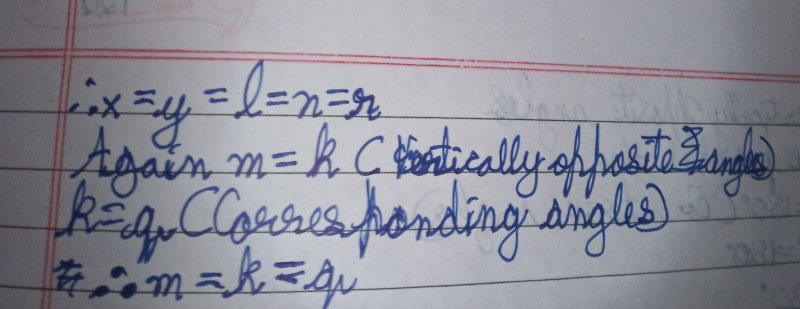 ∴ x = y = l = n = r
Again m = k ( Vertically opposite angles)
k = q (Corresponding angles)
∴ m = k = q